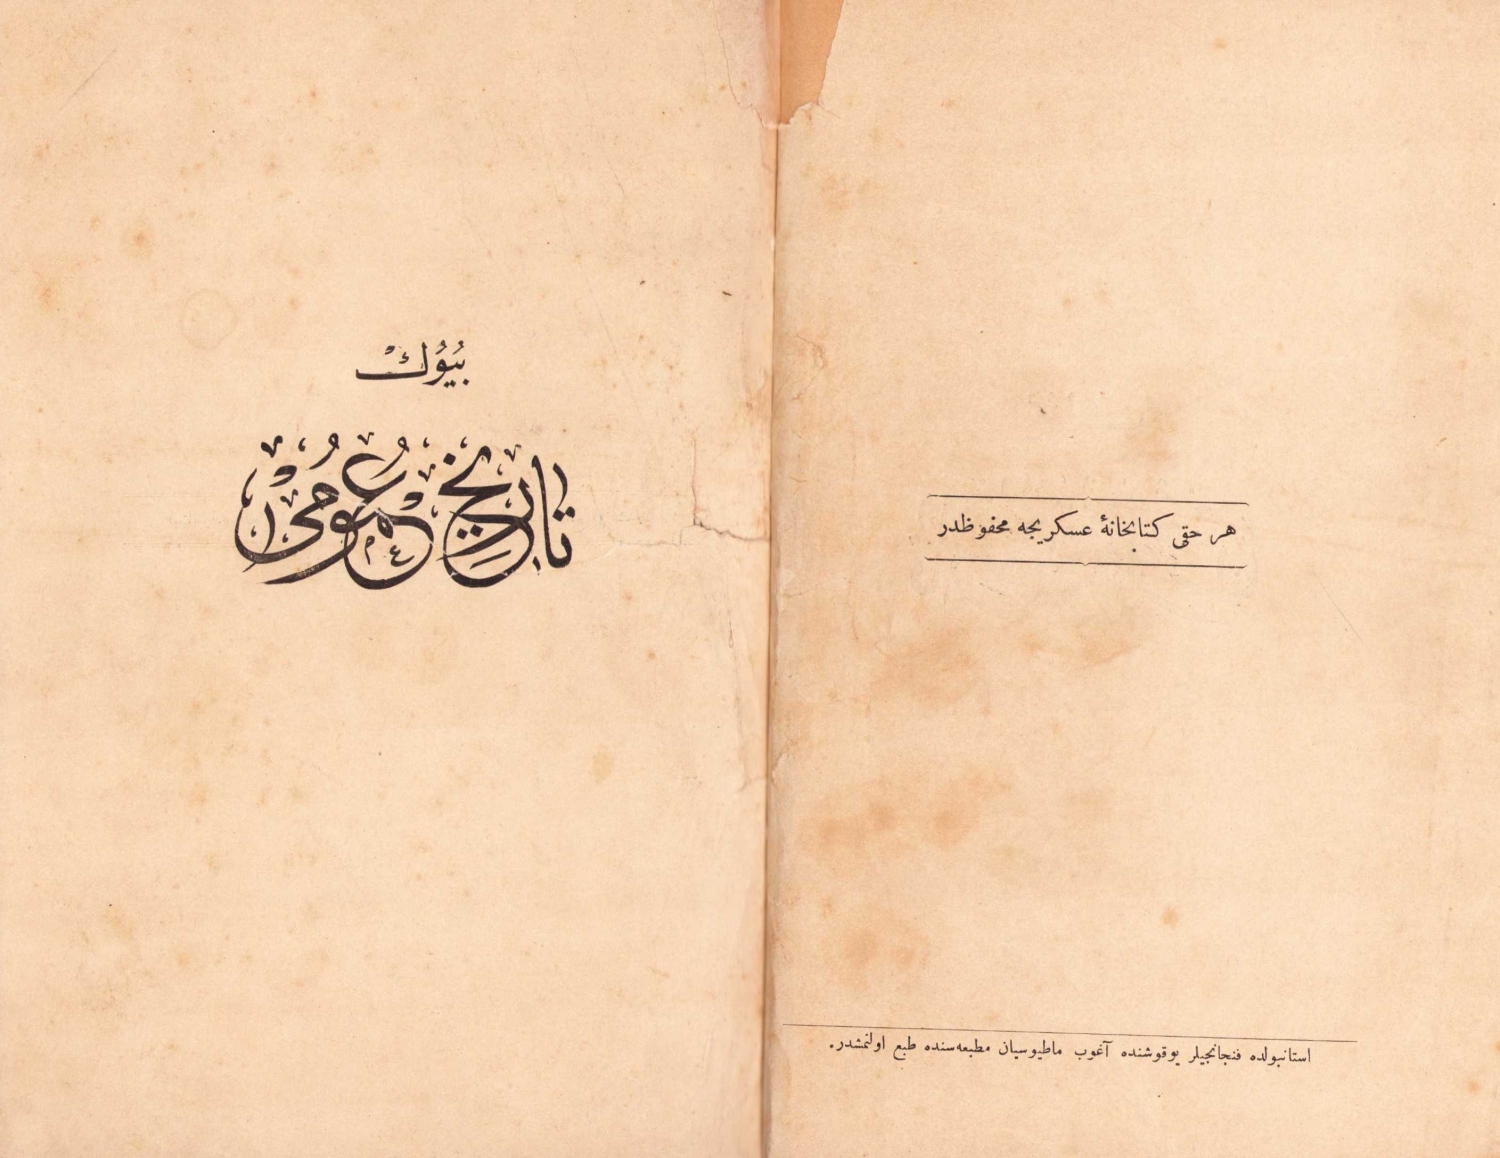 هر حقی کتابخانهٔ عسکریجه محفوظدر
استانبولده فنجانجیلر یوقوشنده آغوب ماطیوسیان مطبعه‌سنده طبع اولنمشدر.
بُیُوك
تاریخ عمومی